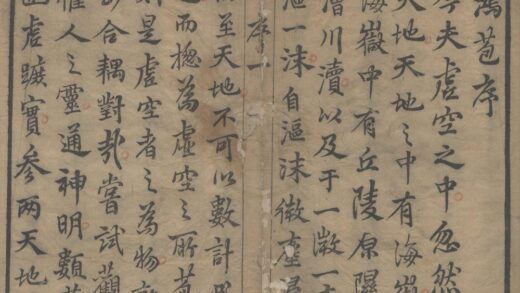 鴻苞序
今夫虛空之中忽然
天地天地之中有海嶽
海嶽中有丘陵原隰
澮川瀆以及于一微一
漚一沫自漚沫微塵
序一
而至天地不可以數計
之而揔為虛空之所苞
則是虛空者之為物
合耦對哉嘗試觀
惟人之靈通神明類
虛蹠實參兩天地